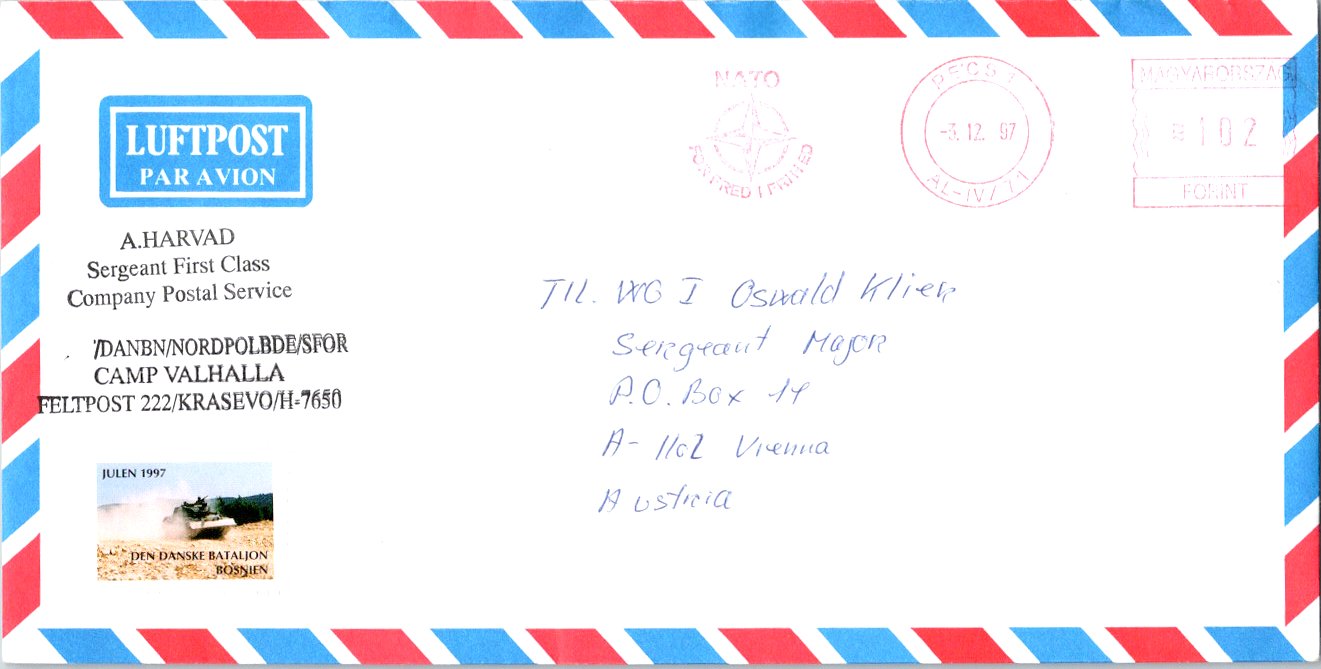 LUFTPOST
PAR AVION
A.HARVAD
Sergeant First Class
Company Postal Service
/DANBN/NORDPOLBDE/SFOR
CAMP VALHALLA
FELTPOST 222/KRASEVO/H-7650
JULEN 1997
DEN DANSKE BATALJON
BOSNIEN
NATO
FOR FRED I FRIHED
PECS 1
-3.12. 97
AL-IV/11
MAGYARORSZÁG
102
FORINT
TIL. WO I Oswald Klien
Sergeant Major
P.O. Box 14
A- 1102 Vienna
Austria